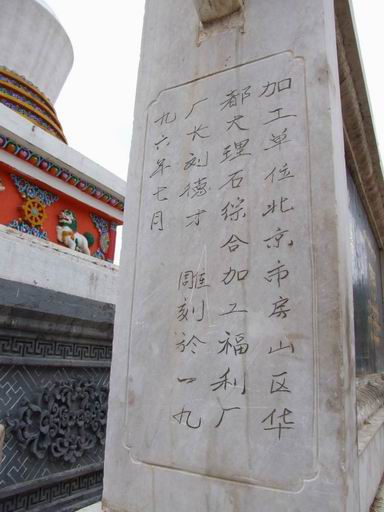 加工单位北京市房山区华
都大理石综合加工福利厂
厂长刘德才 雕刻於一九
九六年七月